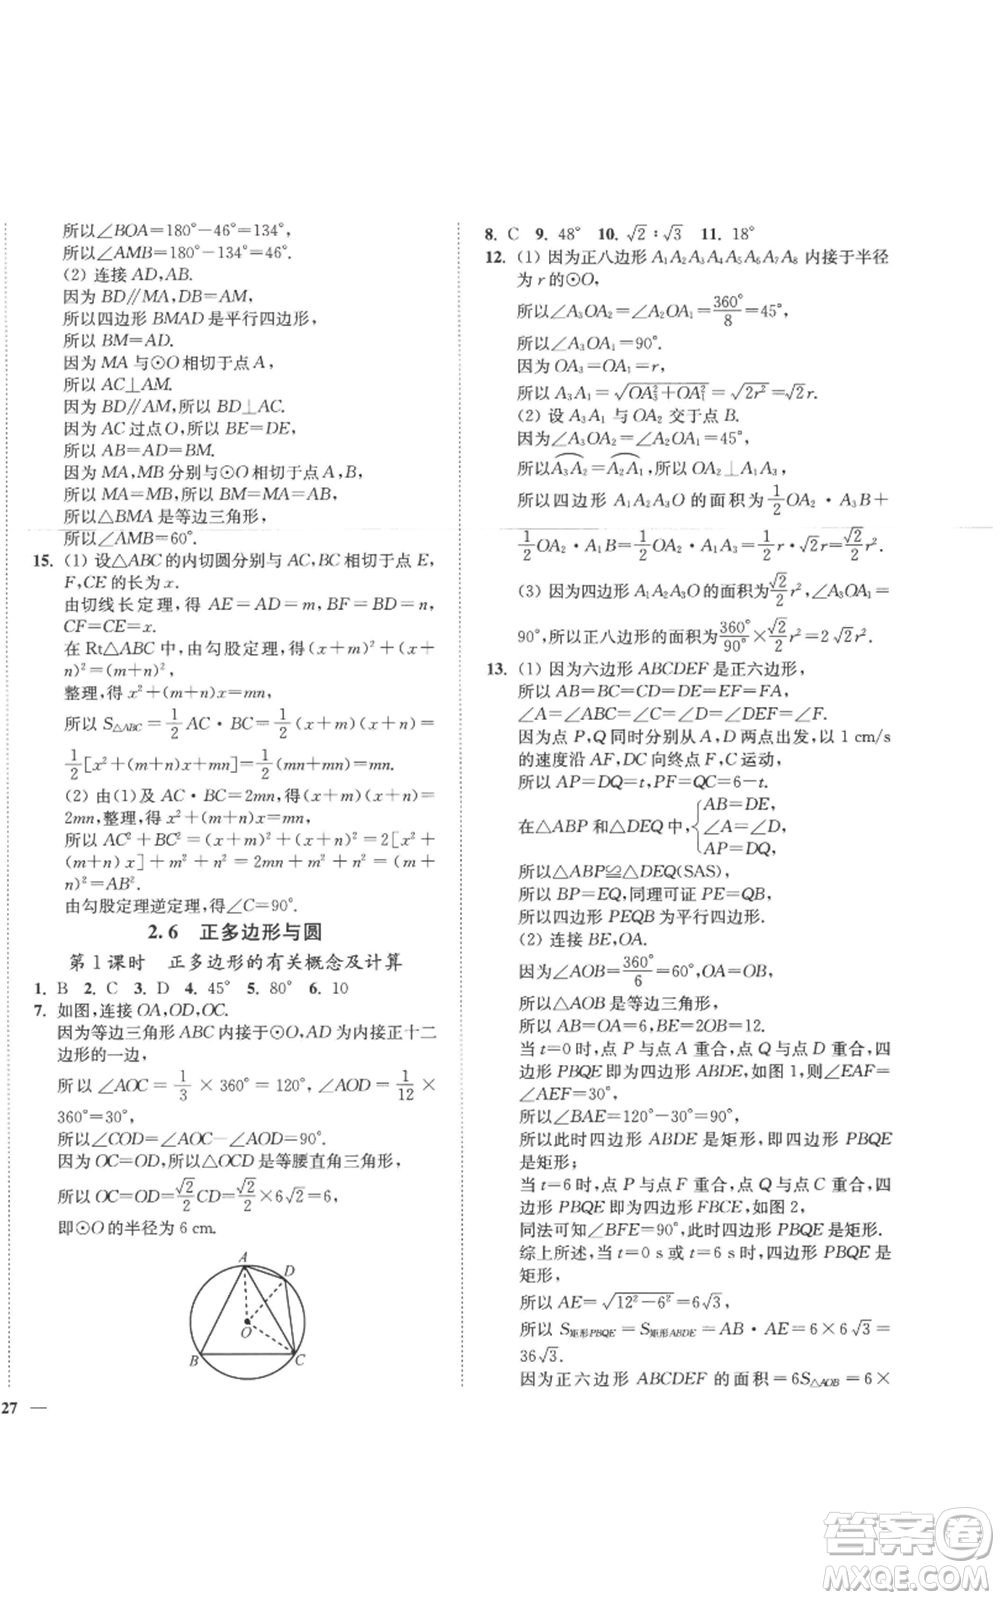 所以∠BOA=180°-46°=134°,
所以∠AMB=180°-134°=46°.
(2) 连接 AD,AB.
因为 BD∥MA,DB=AM,
所以四边形 BMAD 是平行四边形,
所以 BM=AD.
因为 MA 与⊙O 相切于点 A,
所以 AC⊥AM.
因为 BD∥AM,所以 BD⊥AC.
因为 AC 过点 O,所以 BE=DE,
所以 AB=AD=BM.
因为 MA,MB 分别与⊙O 相切,
所以 MA=MB,所以 BM=MA=AB,
所以△BMA 是等边三角形,
所以∠AMB=60°.
15. (1) 设△ABC 的内切圆分别与 AC,BC 相切于点 E,
F,CE 的长为 x.
由切线长定理,得 AE=AD=m,BF=BD=n,
CF=CE=x.
在 Rt△ABC 中,由勾股定理,得(x+m)²+(x+
n)²=(m+n)²,
整理,得 x²+(m+n)x=mn,
所以 S△ABC=1/2 AC·BC=1/2(x+m)(x+n)=
1/2[x²+(m+n)x+mn]=1/2(mn+mn)=mn.
(2) 由(1)及 AC·BC=2mn,得(x+m)(x+n)=
2mn,整理,得 x²+(m+n)x=mn,
所以 AC²+BC²=(x+m)²+(x+n)²=2[x²+
(m+n)x]+m²+n²=2mn+m²+n²=(m+
n)²=AB².
由勾股定理逆定理,得∠C=90°.
2.6 正多边形与圆
第 1 课时 正多边形的有关概念及计算
1. B 2. C 3. D 4. 45° 5. 80° 6. 10
7. 如图,连接 OA,OD,OC.
因为等边三角形 ABC 内接于⊙O,AD 为内接正十二
边形的一边,
所以∠AOC=1/3×360°=120°,∠AOD=1/12×
360°=30°,
所以∠COD=∠AOC-∠AOD=90°.
因为 OC=OD,所以△OCD 是等腰直角三角形,
所以 OC=OD=√2/2 CD=√2/2×6√2=6,
即⊙O 的半径为 6 cm.
A
D
O
B
C
27 —
8. C 9. 48° 10. √2∶√3 11. 18°
12. (1) 因为正八边形 A₁A₂A₃A₄A₅A₆A₇A₈ 内接于半径
为 r 的⊙O,
所以∠A₃OA₂=∠A₂OA₁=360°/8=45°,
所以∠A₃OA₁=90°.
因为 OA₃=OA₁=r,
所以 A₃A₁=√(OA₃²+OA₁²)=√(2r²)=√2r.
(2) 设 A₃A₁ 与 OA₂ 交于点 B.
因为∠A₃OA₂=∠A₂OA₁=45°,
所以A₃A₂=A₂A₁,所以 OA₂⊥A₁A₃,
所以四边形 A₁A₂A₃O 的面积为1/2 OA₂·A₃B+
1/2 OA₂·A₁B=1/2 OA₂·A₃A₁=1/2 r·√2r=√2/2 r².
(3) 因为四边形 A₁A₂A₃O 的面积为√2/2 r²,∠A₃OA₁=
90°,所以正八边形的面积为360°/90°×√2/2 r²=2√2r².
13. (1) 因为六边形 ABCDEF 是正六边形,
所以 AB=BC=CD=DE=EF=FA,
∠A=∠ABC=∠C=∠D=∠DEF=∠F.
因为点 P,Q 同时分别从 A,D 两点出发,以 1 cm/s
的速度沿 AF,DC 向终点 F,C 运动,
所以 AP=DQ=t,PF=QC=6-t.
在△ABP 和△DEQ 中,{AB=DE,
∠A=∠D,
AP=DQ,
所以△ABP≌△DEQ(SAS),
所以 BP=EQ,同理可证 PE=QB,
所以四边形 PEQB 为平行四边形.
(2) 连接 BE,OA.
因为∠AOB=360°/6=60°,OA=OB,
所以△AOB 是等边三角形,
所以 AB=OA=6,BE=2OB=12.
当 t=0 时,点 P 与点 A 重合,点 Q 与点 D 重合,四
边形 PBQE 即为四边形 ABDE,如图 1,则∠EAF=
∠AEF=30°,
所以∠BAE=120°-30°=90°,
所以此时四边形 ABDE 是矩形,即四边形 PBQE
是矩形;
当 t=6 时,点 P 与点 F 重合,点 Q 与点 C 重合,四
边形 PBQE 即为四边形 FBCE,如图 2,
同法可知∠BFE=90°,此时四边形 PBQE 是矩形.
综上所述,当 t=0 s 或 t=6 s 时,四边形 PBQE 是
矩形,
所以 AE=√(12²-6²)=6√3,
所以 S矩形PBQE=S矩形ABDE=AB·AE=6×6√3=
36√3.
因为正六边形 ABCDEF 的面积=6S△AOB=6×
答案圈
MXQE.COM